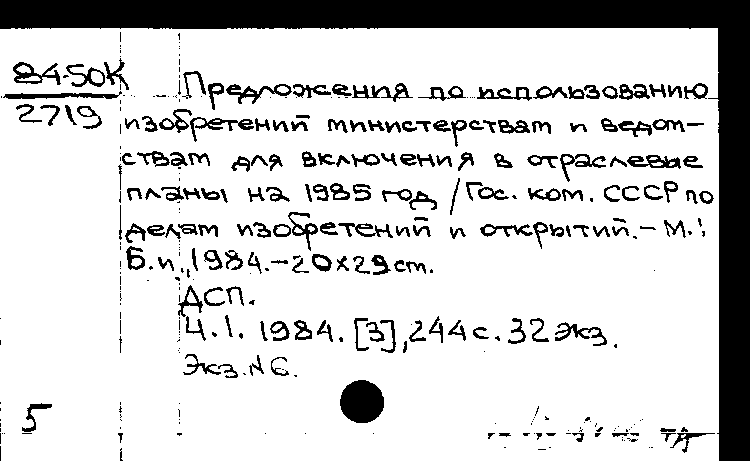 84-50К
2719
Предложения по использованию
изобретений министерствам и ведом-
ствам для включения в отраслевые
планы на 1985 год / Гос. ком. СССР по
делам изобретений и открытий. - М.:
Б.и., 1984. - 20х29 см.
ДСП.
Ч.1. 1984. [3], 244 с. 32 экз.
Экз. № 6.
5